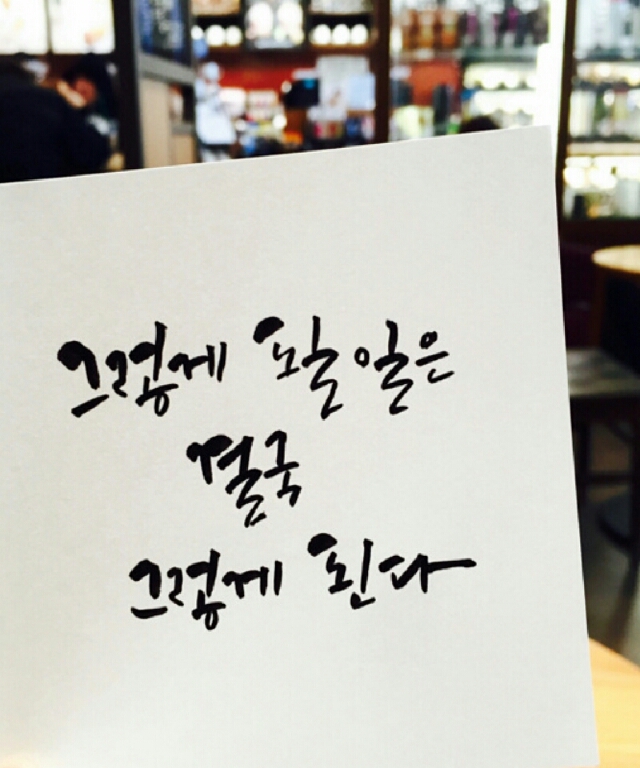 그렇게 될 일은
결국
그렇게 된다